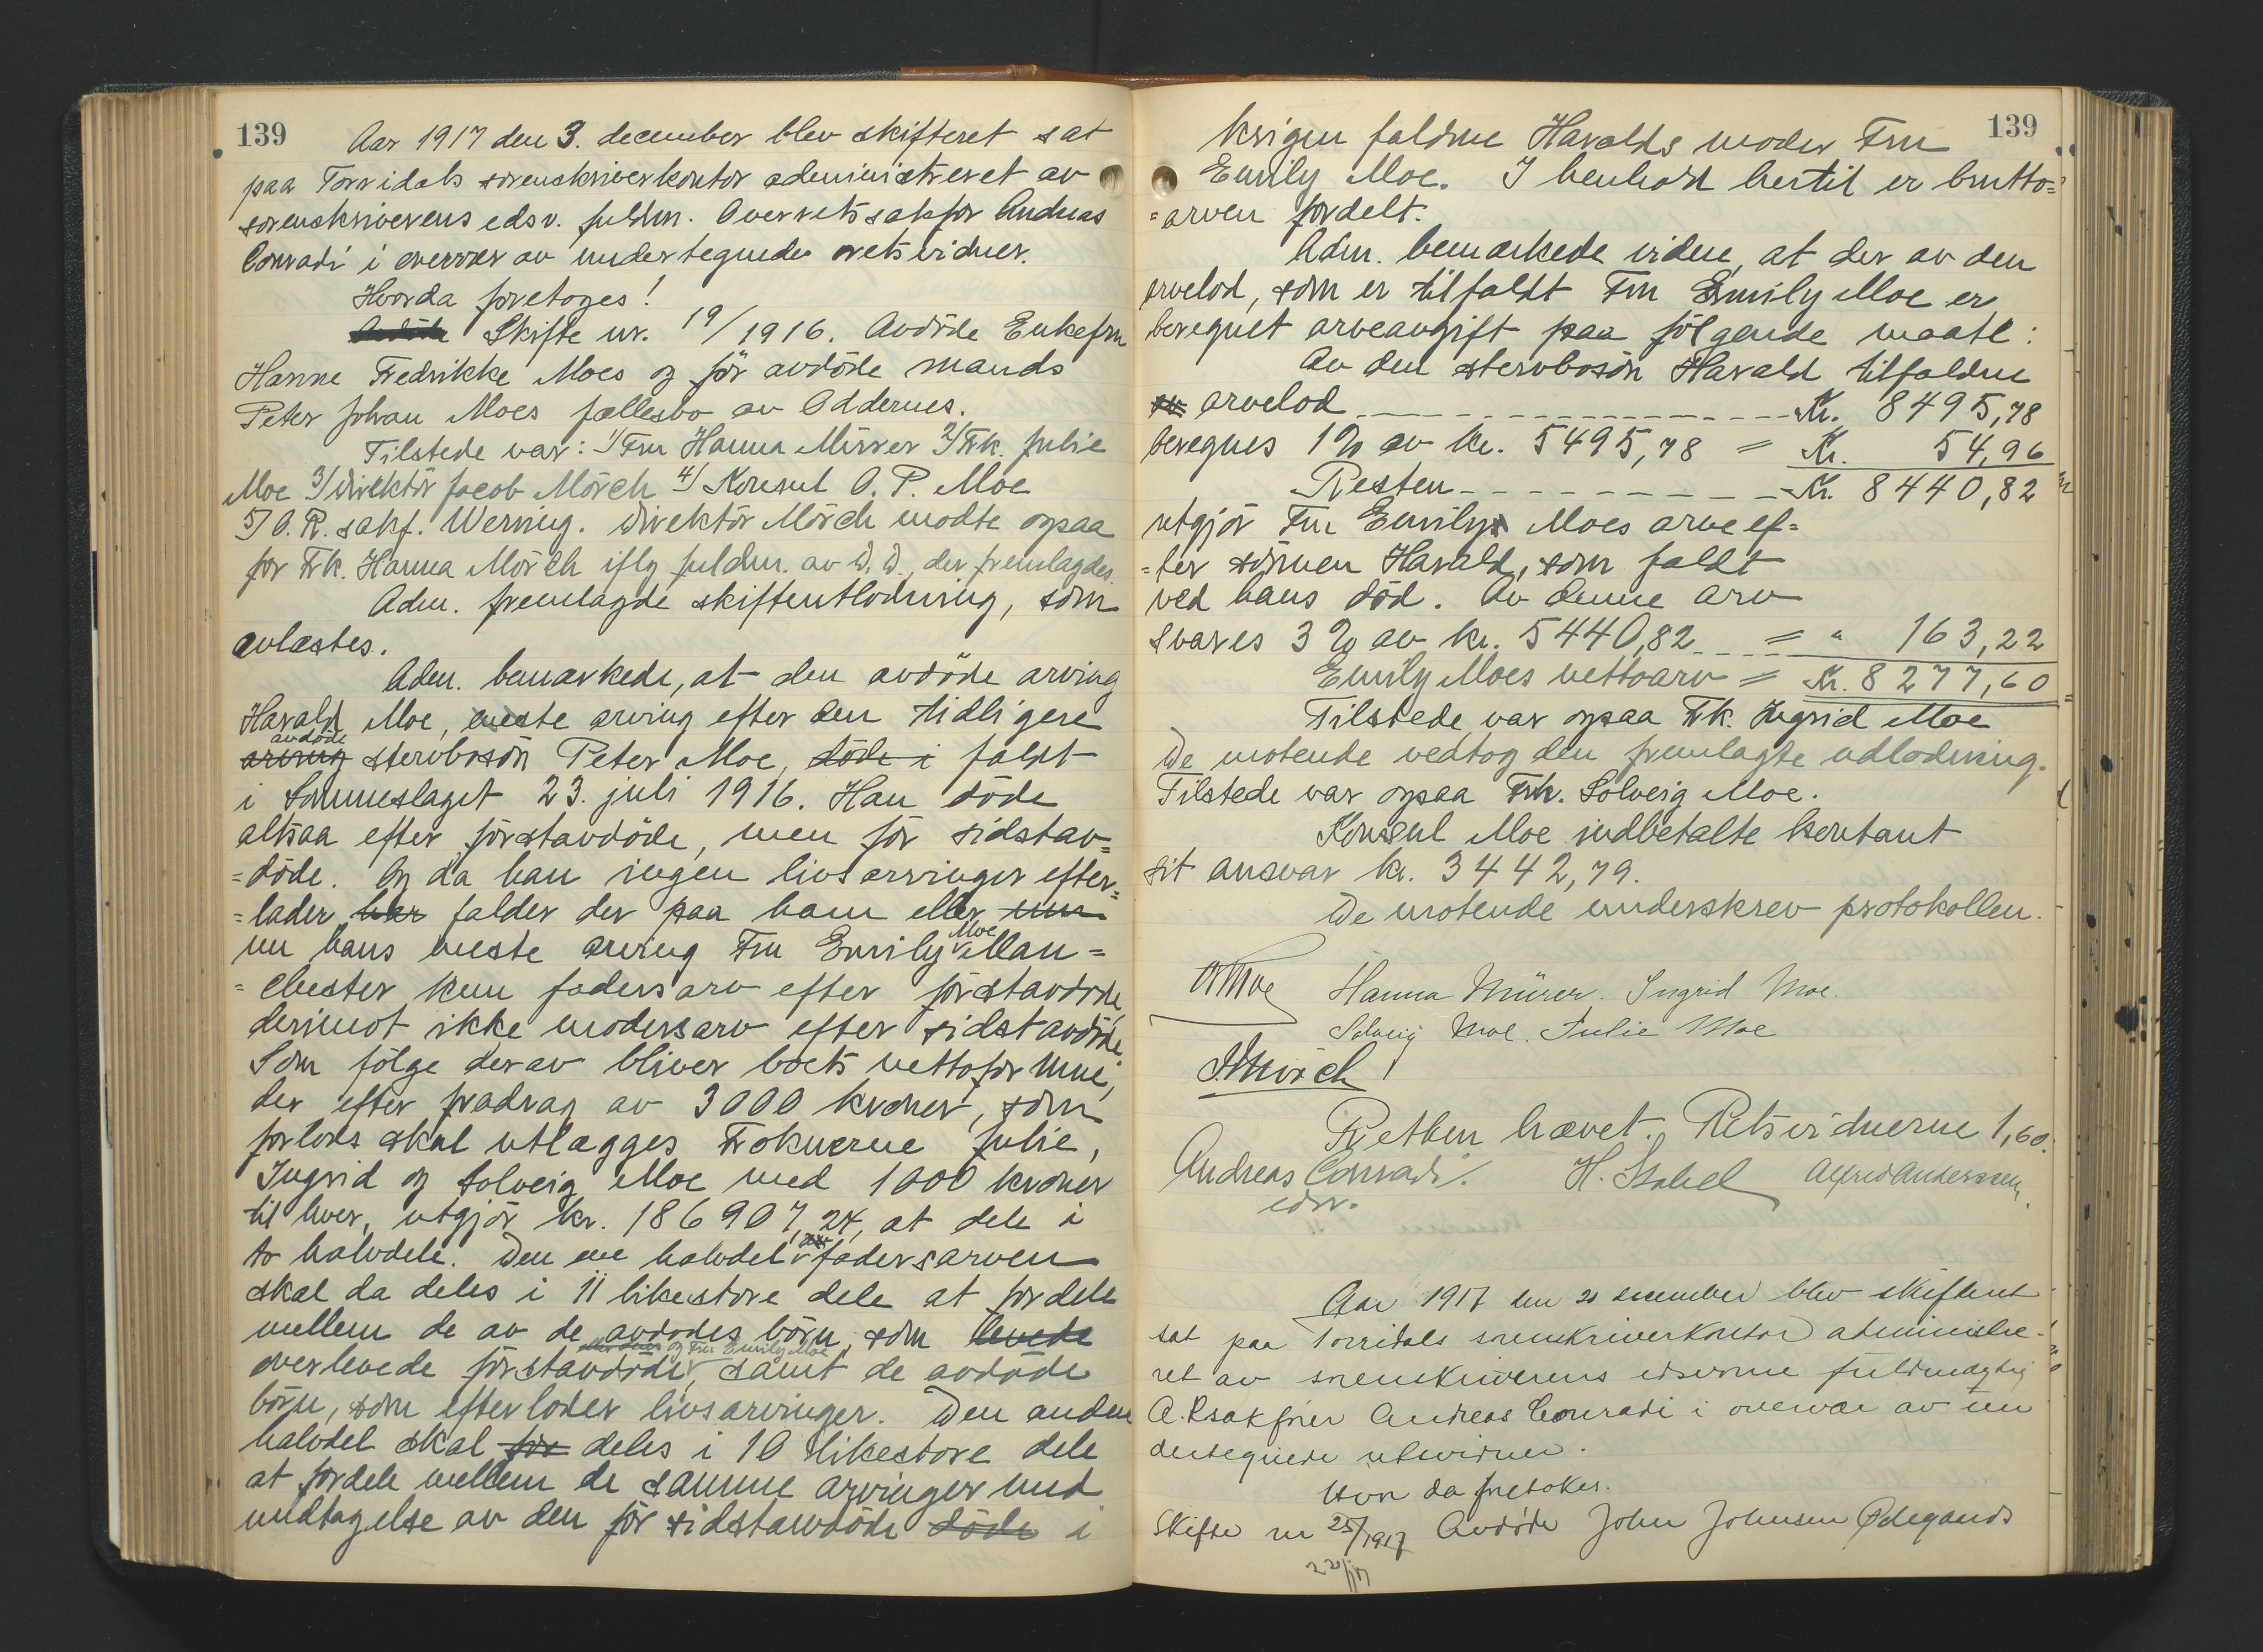 139
Aar 1917 den 3. december blev skifteret sat
paa Torridals sorenskriverkontor administreret av
sorenskriverens edsv. fuldm. Overretssakfør Andreas
Conradi i overvær av undertegnede retsvidner.
Hvorda foretoges!
Skifte nr. 19/1916. Avdöde Enkefru
Hanne Fredrikke Moes og för avdöde mands
Peter Johan Moes fællesbo av Oddernes.
Tilstede var: 1/ Fru Hanna Mürer 2/ Frk. Julie
Moe 3/ Direktör Jacob Mörch 4/ Konsul O. P. Moe
5/ O.R. sakf. Werning. Direktör Mörch mødte ogsaa
for Frk. Hanna Mörch iflg fuldm. av D. D., der fremlagdes.
Adm. fremlagde skifteutlodning, som
avlæstes.
Adm. bemærkede, at den avdöde arving
Harald Moe, neste arving efter den tidligere
avdöde
arving stervbosön Peter Moe, döde i faldt
i Sommeslaget 23. juli 1916. Han döde
altsaa efter förstavdöde, men för sidstav=
=döde. Og da han ingen livsarvinger efter=
=lader har falder der paa ham eller
nu hans neste arving Fru Emily Moe Man=
=chester kun fadersarv efter förstavdöde,
derimot ikke modersarv efter sidstavdöde.
Som fölge derav bliver boets nettoformue,
der efter fradrag av 3000 kroner, som
forlods skal utlægges Frøknerne Julie,
Ingrid og Solveig Moe med 1000 kroner
til hver, utgjör kr. 186907,24, at dele i
to halvdele. Den ene halvdel fadersarven
skal da deles i 11 likestore dele at fordele
mellem de av de avdødes börn, som levede
og Fru Emily Moe
overlevede förstavdöde, samt de avdöde
börn, som efterlader livsarvinger. Den anden
halvdel skal for deles i 10 likestore dele
at fordele mellem de samme arvinger med
undtagelse av den för sidstavdöde döde i
139
krigen faldne Haralds moder Fru
Emily Moe. I henhold hertil er brutto=
=arven fordelt.
Adm. bemærkede videre, at der av den
arvelod, som er tilfaldt Fru Emily Moe er
beregnet arveavgift paa fölgende maate:
Av den stervbosön Harald tilfaldne
arvelod - - - Kr. 8495,78
beregnes 1% av kr. 5495,78 = Kr. 54,96
Resten - - - Kr. 8440,82
utgjör Fru Emily Moes arv ef=
=ter sönnen Harald, som faldt
ved hans död. Av denne arv
svares 3% av kr. 5440,82 - - = " 163,22
Emily Moes nettoarv = Kr. 8277,60
Tilstede var ogsaa Frk. Ingrid Moe
De møtende vedtog den fremlagte udlodning.
Tilstede var ogsaa Frk. Solveig Moe.
Konsul Moe indbetalte kontant
sit ansvar kr. 3442,79.
De møtende underskrev protokollen.
OPMoe Hanna Mürer. Ingrid Moe.
Solveig Moe. Julie Moe
J.Mörch
Retten hævet. Retsvidnerne 1,60.
Andreas Conradi. H. Stabel Alfred Anderssen.
edsv.
Aar 1917 den 20 december blev skifteret
sat paa Torridals sorenskriverkontor administre-
ret av sorenskriverens edsvorne fuldmægtig
O.Rsakfører Andreas Conradi i overvær av un
dertegnede retsvidner.
Hvor da foretokes.
Skifte nr 25/1917 Avdöde John Johnsen Ødegaards
22/17